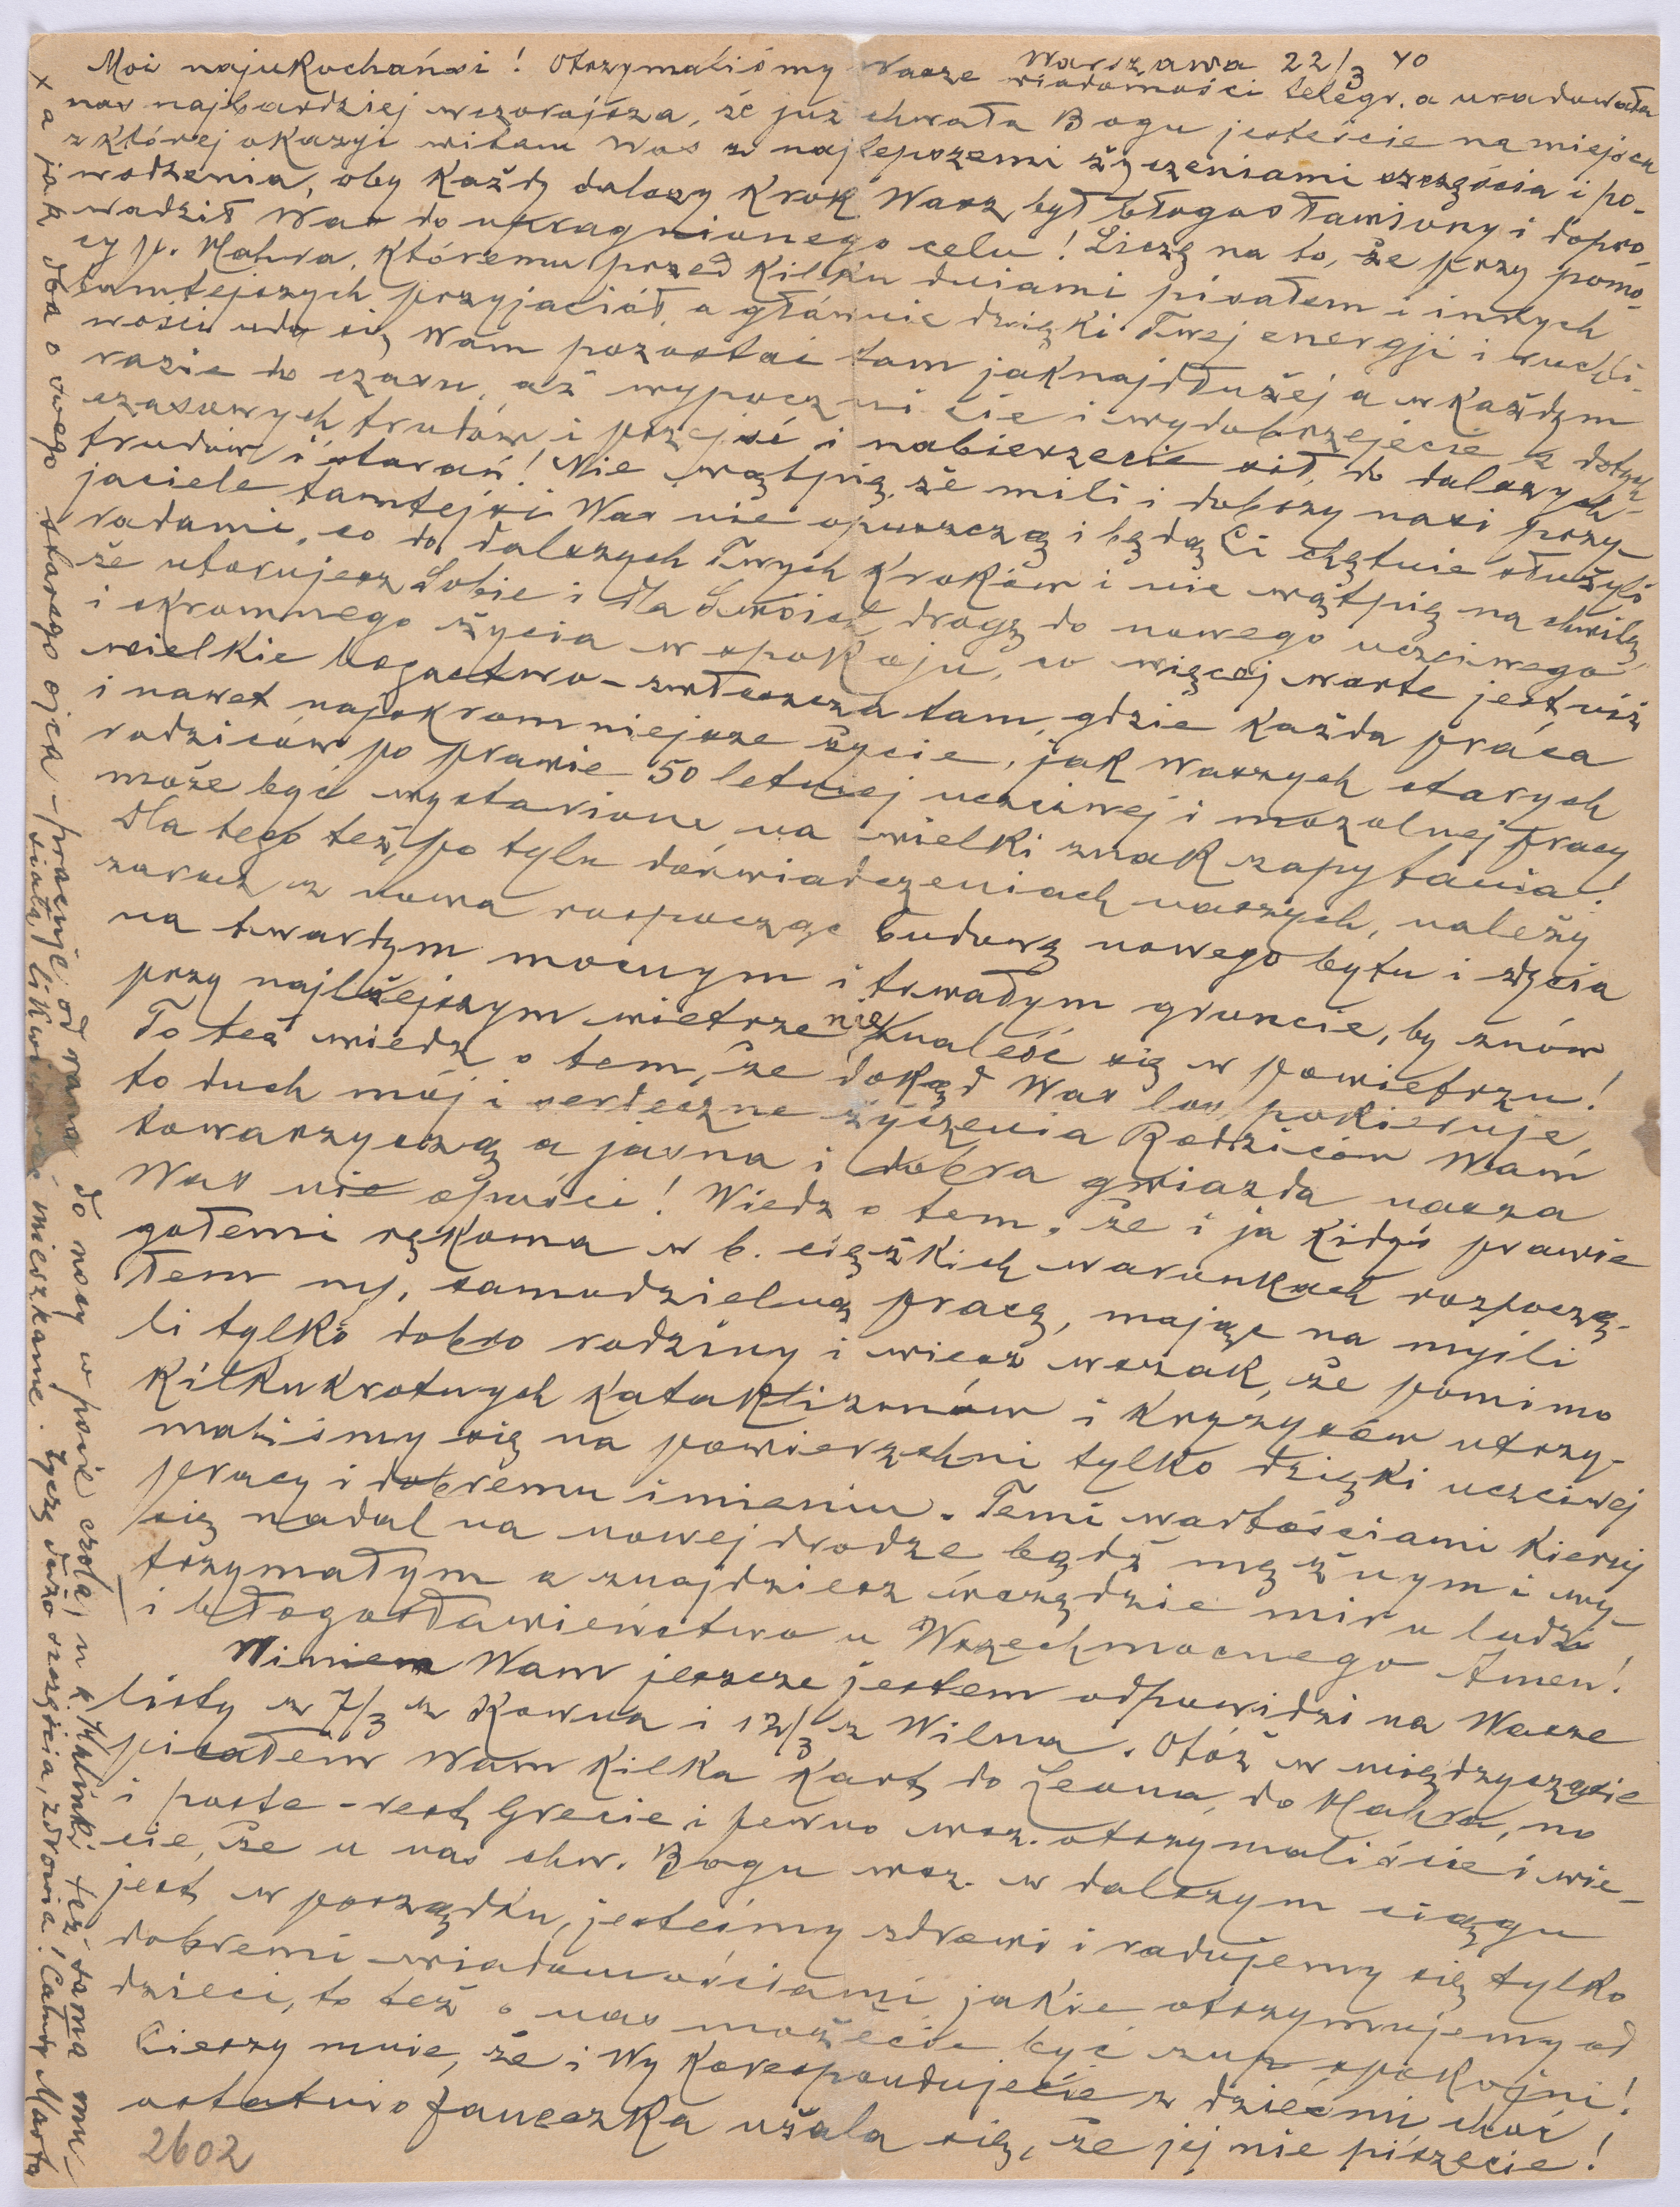 Warszawa 22/3 40
Moi najukochańsi! Otrzymaliśmy Wasze wiadomości telegr. a uradowała
nas najbardziej wczorajsza, że już chwała Bogu jesteście na miejscu
z której okazyi witam Was z najlepszemi życzeniami szczęścia i po-
wodzenia, oby każdy dalszy krok Wasz był błogosławiony i dopro-
wadził Was do upragnionego celu! Liczę na to, że przy pomo-
cy p. Mahra, któremu przed kilku dniami pisałem i innych
tamtejszych przyjaciół, a głównie dzięki Twej energji i ruchli-
wości uda się Wam pozostać tam jaknajdłużej a w każdym
razie do czasu, aż wypoczniecie i wydobrzejecie z dotych-
czasowych trudów i przejść i nabierzecie sił, do dalszych
trudów i starań! Nie wątpię, że mili i dobrzy nasi przy-
jaciele tamtejsi Was nie opuszczą i będą Ci chętnie służyli
radami, co do dalszych Twych kroków i nie wątpię na chwilę,
że utorujesz Sobie i dla Swoich drogę do nowego uczciwego
i skromnego życia w spokoju, co więcej warte jest niż
wielkie bogactwo – zwłaszcza tam, gdzie każda praca
i nawet najskromniejsze życie, jak Waszych starych
rodziców po prawie 50 letniej uczciwej i mozolnej pracy
może być wystawione na wielki znak zapytania!
Dla tego też, po tylu doświadczeniach naszych, należy
zaraz z nowa rozpocząć budowę nowego bytu i życia
na twardym mocnym i trwałym gruncie, by znów
przy najlżejszym wietrze nie znaleść się w powietrzu!
To też wiedz o tem, że dokąd Was los pokieruje,
to duch mój i serdeczne życzenia Rodziców Wam
towarzyszą a jasna i dobra gwiazda nasza
Was nie opuści! Wiedz o tem, że i ja kidyś prawie
gołemi rękoma w b. ciężkich warunkach rozpoczą-
łem mą samodzielną pracę, mając na myśli
li tylko dobro rodziny i wiesz wszak, że pomimo
kilkukrotnych kataklizmów i kryzysów utrzy-
maliśmy się na powierzchni tylko dzięki uczciwej
pracy i dobremu imieniu. Temi wartościami kieruj
się nadal na nowej drodze bądź mężnym i wy-
trzymałym a znajdziesz wszędzie mir u ludzi
i błogosławieństwo u Wszechmocnego Amen!
Winien Wam jeszcze jestem odpowidzi na Wasze
listy z 7/3 z Kowna i 12/3 z Wilna. Otóż w międzyczasie
pisałem Wam kilka kart do Leona, do Mahra, no
i poste-rest. Grecie i pewno wsz. otrzymaliście i wie-
cie, że u nas chw. Bogu wsz. w dalszym ciągu
jest w porządku, jesteśmy zdrowi i radujemy się tylko
dobremi wiadomościami jakie otrzymujemy od
dzieci, to też o nas możecie być zup. spokojni!
Cieszy mnie, że i Wy korespondujecie z dziećmi, choć
ostatnio Janeczka użala się, że jej nie piszecie!
2602
x a jak dba o swego starego ojca – pracuje od rana do nocy w pocie czoła, u Halinki też sama mu-
siała likwidować mieszkanie. Życzę dużo szczęścia, zdrowia! Całuję Marta